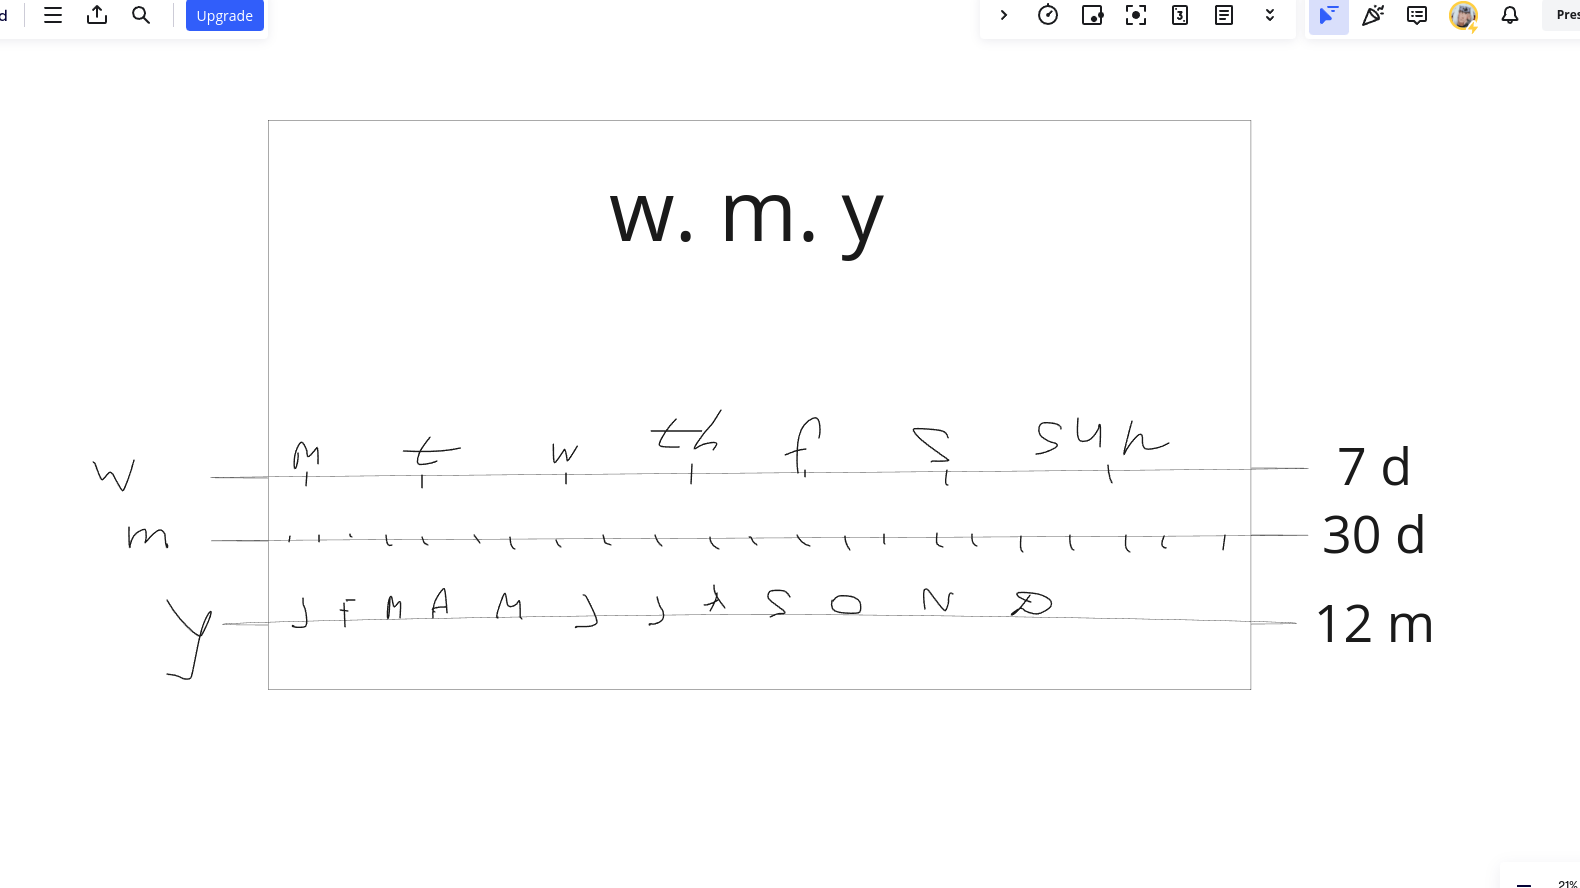 d
Upgrade
3
Pres
w. m. y
w m t w th f s sun 7 d
m 30 d
y J F M A M J J A S O N D 12 m
21%